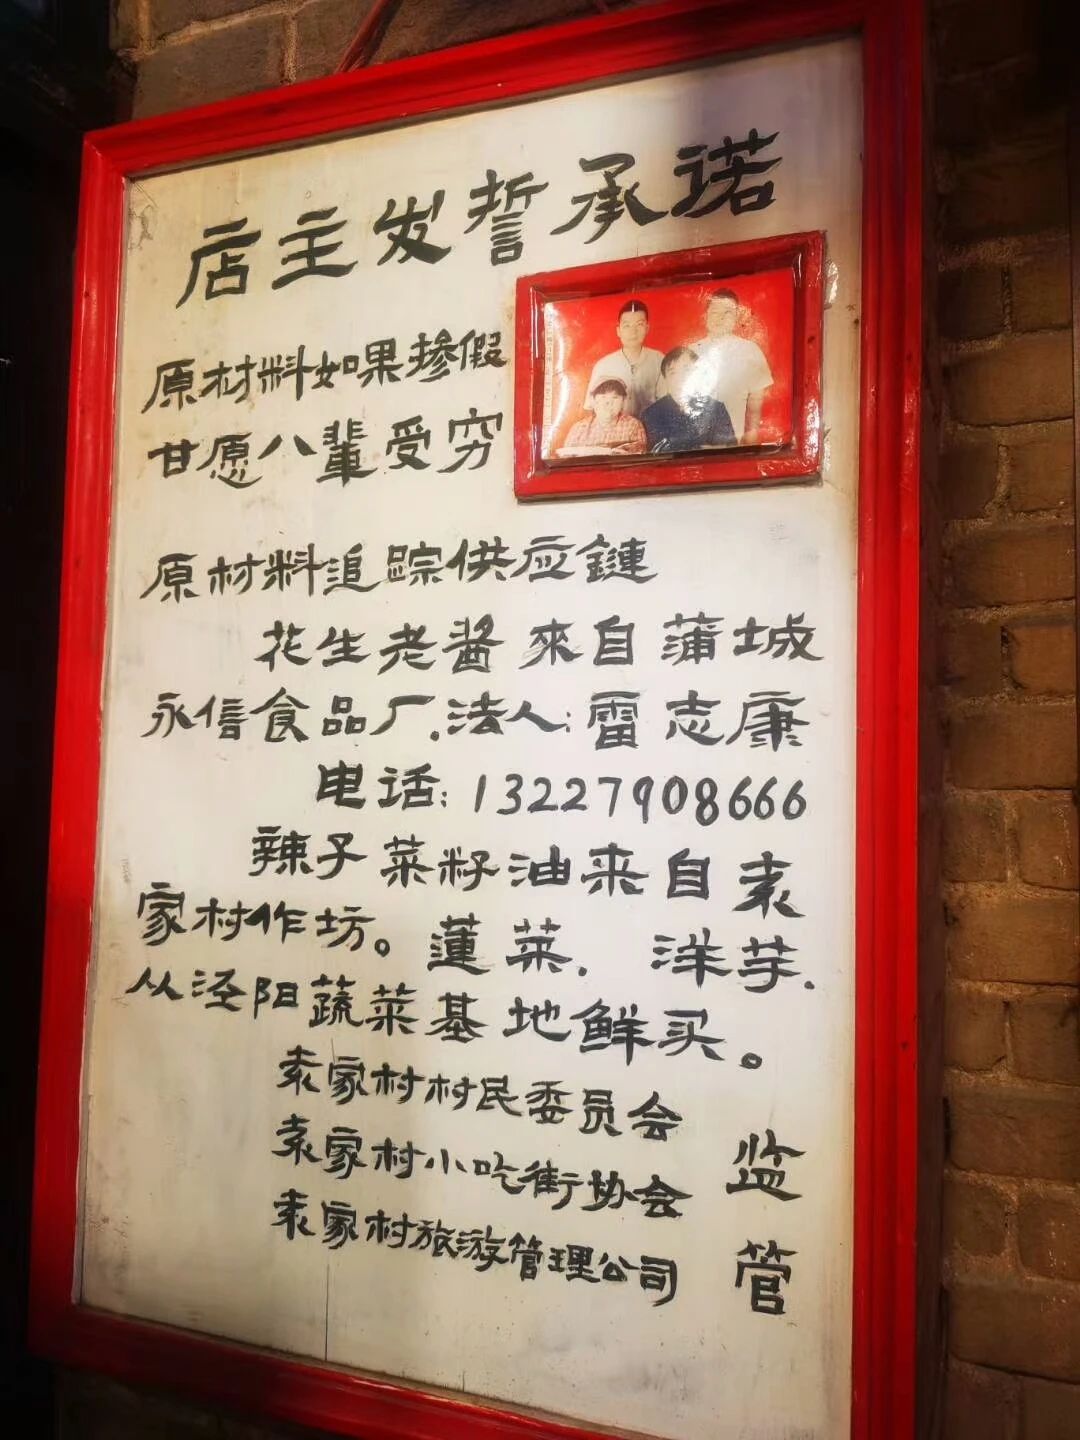 店主发誓承诺
原材料如果掺假
甘愿八辈受穷
原材料追踪供应鏈
花生老酱來自蒲城
永信食品厂.法人:雷志康
电话:13227908666
辣子菜籽油来自袁
家村作坊。蓮菜.洋芋.
从泾阳蔬菜基地鲜买。
袁家村村民委员会
袁家村小吃街协会
袁家村旅游管理公司
监管